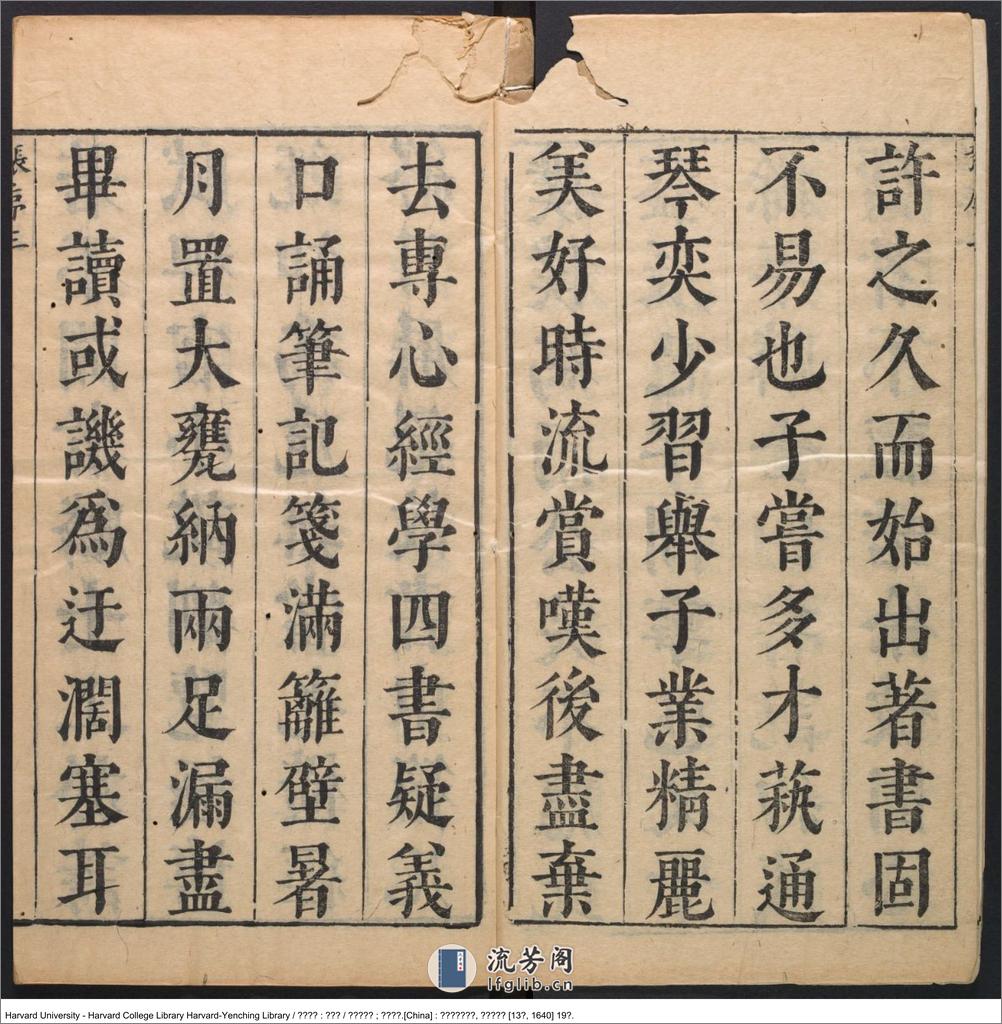 許之久而始出著書固
不易也子嘗多才蓺通
琴奕少習舉子業精麗
美好時流賞嘆後盡棄
去專心經學四書疑義
口誦筆記箋滿籬壁暑
月置大甕納兩足漏盡
畢讀或譏為迂濶塞耳
張序三
流芳阁
lfglib.cn
Harvard University - Harvard College Library Harvard-Yenching Library / ???? : ??? / ????? ; ????.[China] : ???????, ????? [13?, 1640] 19?.